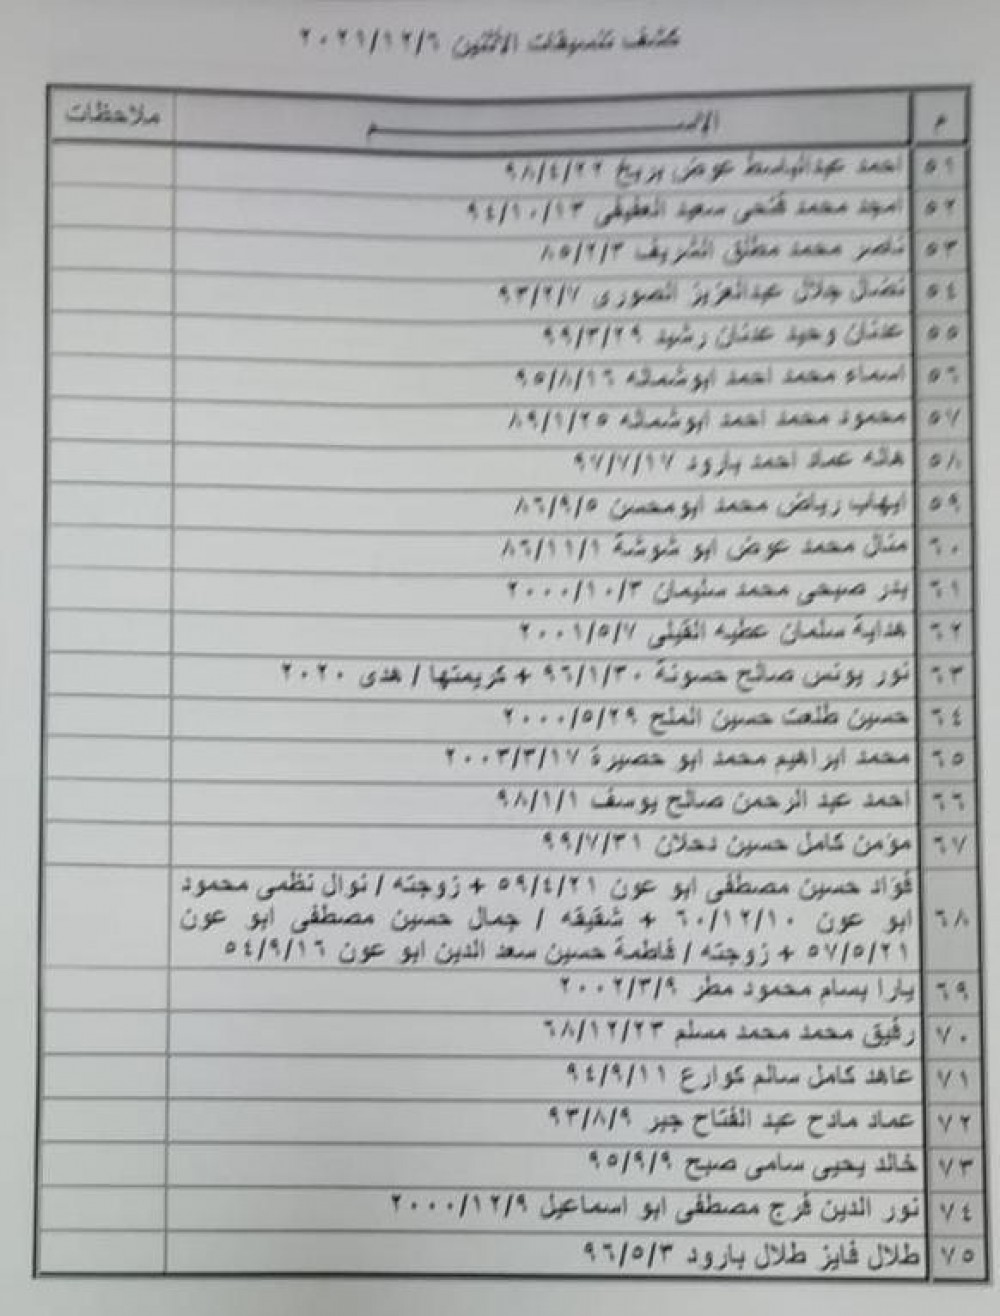 كشف تنسيقات الاثنين ٢٠٢١/١٢/٦
م الاســـــــم ملاحظات
٥١ احمد عبدالباسط عوض بريخ ٩٨/٤/٢٢
٥٢ امجد محمد فتحى سعيد العفيفى ٩٤/١٠/١٣
٥٣ ناصر محمد مطلق الشريف ٨٥/٢/٣
٥٤ نضال جلال عبدالعزيز الصورى ٩٣/٢/٧
٥٥ عدنان وحيد عدنان رشيد ٩٩/٣/٢٩
٥٦ اسماء محمد احمد ابوشماله ٩٥/٨/١٦
٥٧ محمود محمد احمد ابوشماله ٨٩/١/٢٥
٥٨ هاله عماد احمد بارود ٩٧/٧/١٧
٥٩ ايهاب رياض محمد ابومحسن ٨٦/٩/٥
٦٠ منال محمد عوض ابو شوشة ٨٦/١١/١
٦١ بدر صبحى محمد سليمان ٢٠٠٠/١٠/٣
٦٢ هداية سلمان عطيه الفيلى ٢٠٠١/٥/٧
٦٣ نور يونس صالح حسونة ٩٦/١/٣٠ + كريمتها / هدى ٢٠٢٠
٦٤ حسين طلعت حسين الملح ٢٠٠٠/٥/٢٩
٦٥ محمد ابراهيم محمد ابو حصيرة ٢٠٠٣/٣/١٧
٦٦ احمد عبد الرحمن صالح يوسف ٩٨/١/١
٦٧ مؤمن كامل حسين دحلان ٩٩/٧/٣١
٦٨ فؤاد حسين مصطفى ابو عون ٥٩/٤/٢١ + زوجته / نوال نظمى محمود
ابو عون ٦٠/١٢/١٠ + شقيقه / جمال حسين مصطفى ابو عون
٥٧/٥/٢١ + زوجته / فاطمة حسين سعد الدين ابو عون ٥٤/٩/١٦
٦٩ يارا بسام محمود مطر ٢٠٠٢/٣/٩
٧٠ رفيق محمد محمد مسلم ٦٨/١٢/٢٣
٧١ عاهد كامل سالم كوارع ٩٤/٩/١١
٧٢ عماد مادح عبد الفتاح جبر ٩٣/٨/٩
٧٣ خالد يحيى سامى صبح ٩٥/٩/٩
٧٤ نور الدين فرج مصطفى ابو اسماعيل ٢٠٠٠/١٢/٩
٧٥ طلال فايز طلال بارود ٩٦/٥/٣